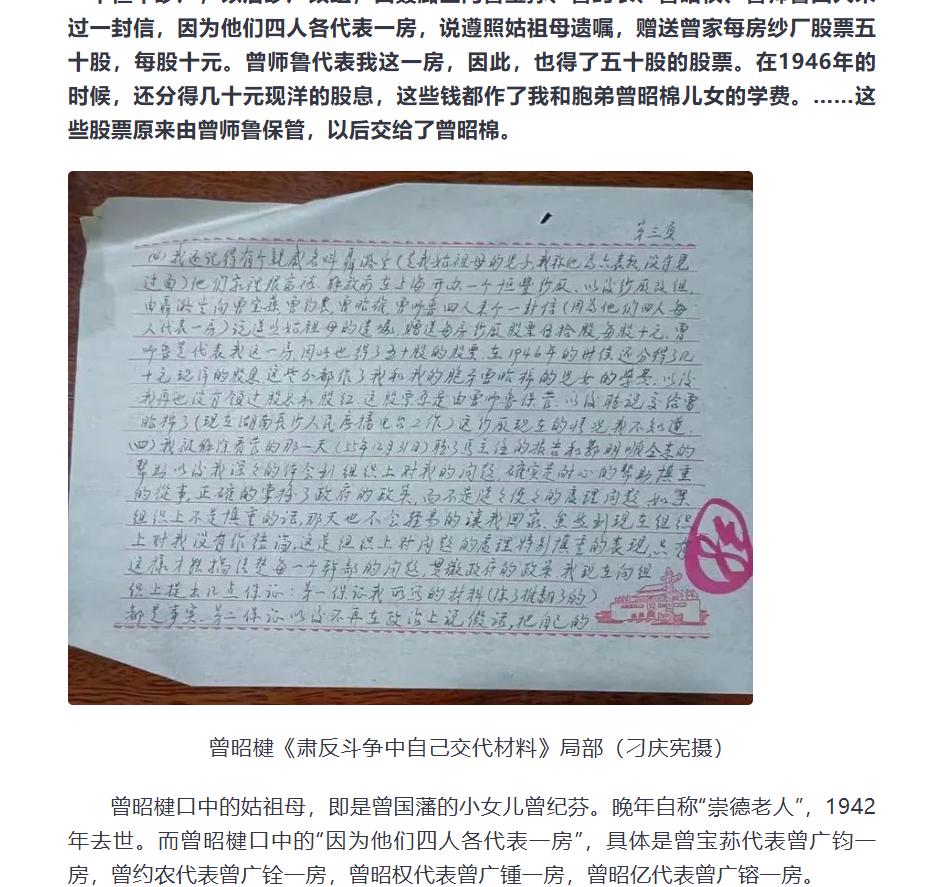 过一封信，因为他们四人各代表一房，说遵照姑祖母遗嘱，赠送曾家每房纱厂股票五
十股，每股十元。曾师鲁代表我这一房，因此，也得了五十股的股票。在1946年的
时候，还分得几十元现洋的股息，这些钱都作了我和胞弟曾昭棉儿女的学费。……这
些股票原来由曾师鲁保管，以后交给了曾昭棉。
第三页
(4)我还记得有个亲戚名叫聂潞生(是我姑祖母的儿子,我称他为六表叔,没有见
过面)他们家里很富裕.解放前在上海开办一个恒丰纱厂.以后纱厂改组,
由聂潞生向曾宝荪曾约农曾昭权曾师鲁四人来个一封信(因为他们四人每
人代表一房)说遵照姑祖母的遗嘱,赠送每房纱厂股票伍拾股,每股十元.曾
师鲁是代表我这一房,因此也得了五十股的股票.在1946年的时候还分得了几
十元现洋的股息.这些钱都作了我和我的胞弟曾昭棉的儿女的学费.以后
我再也没有领过股息和股红.这股票原是由曾师鲁保管.以后听说交给曾
昭棉了(现在湖南长沙人民广播电台工作)这纱厂现在的情况,我不知道.
(四)我被解除看管的那一天(55年12月31日)听了主任的报告和
帮助以后我深深的体会到组织上对我的问题,确实是耐心的帮助慎重
的从事,正确的掌握了政府的政策,而不是随随便便的处理问题,如果
组织上不是慎重的话,那天也不会轻易的让我回家.虽然到现在组织
上对我没有作结论,这是组织上对问题的处理特别慎重的表现,只有
这样才能搞清楚每一个干部的问题,贯彻政府的政策.我现在向组
织上提出几点保证:第一保证我所写的材料(除了推翻了的)
都是事实.第二保证以后不再在政治上说假话,把自己的
曾昭楗《肃反斗争中自己交代材料》局部（刁庆宪摄）
曾昭楗口中的姑祖母，即是曾国藩的小女儿曾纪芬。晚年自称“崇德老人”，1942
年去世。而曾昭楗口中的“因为他们四人各代表一房”，具体是曾宝荪代表曾广钧一
房，曾约农代表曾广铨一房，曾昭权代表曾广锺一房，曾昭亿代表曾广镕一房。